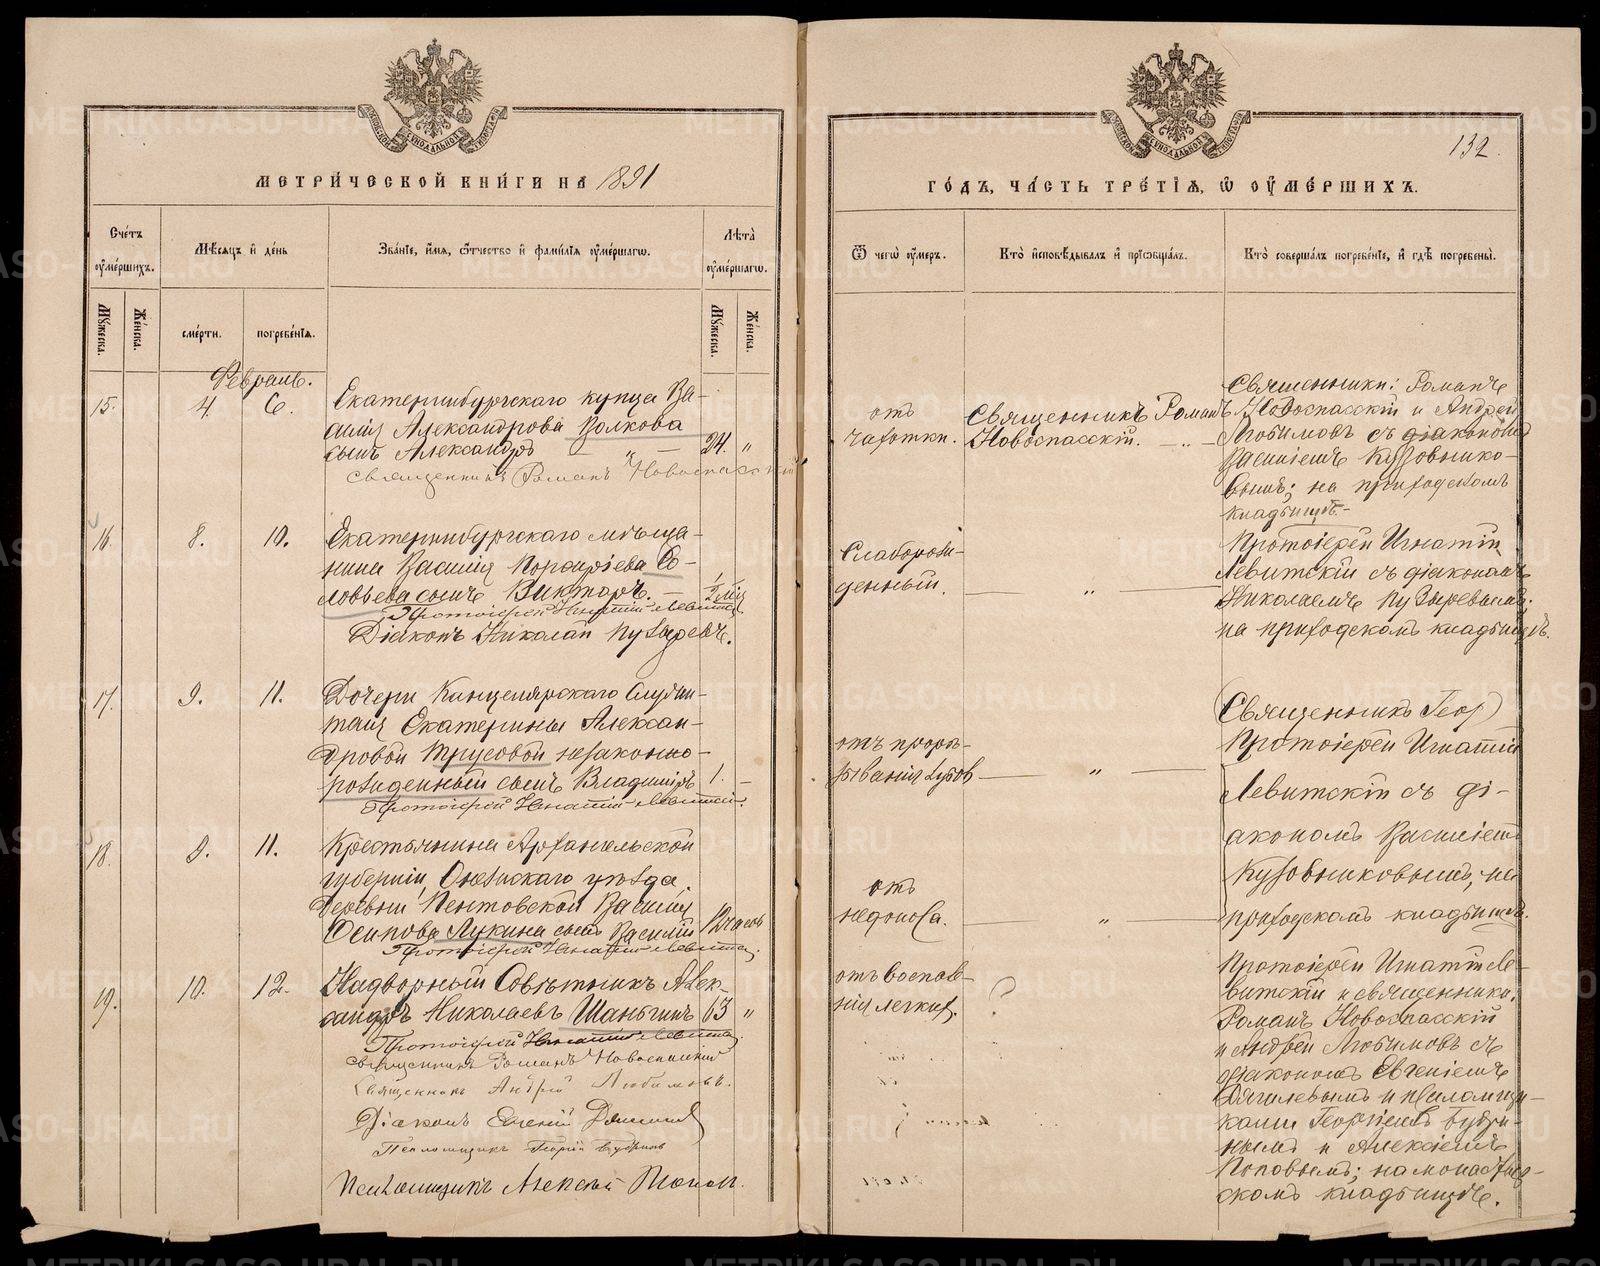 МЕТРИ́ЧЕСКОЙ КНИ́ГИ НА 1891
Сче́тъ ᲂу҆ме́ршихъ.
Мѣ́сяцъ и҆ де́нь
Зва́нїе, и҆́мя, ѻ҆́тчество и҆ фами́лїя ᲂу҆ме́ршагѡ.
Лѣ́та ᲂу҆ме́ршагѡ.
Мꙋ́жеска.
Же́нска.
сме́рти.
погребе́нїя.
Мꙋ́жеска.
Же́нска.
Февраль.
15. 4. 6.
Екатеринбургскаго купца Ва-
силія Александрова Волкова
сынъ Александръ — „ — 24. „
Священникъ Романъ Новоспасскій
16. 8. 10.
Екатеринбургскаго мѣща-
нина Василія Порфиріева Со-
ловьева сынъ Викторъ. — 1/2 мѣс
Протоіерей Игнатій Левитскій
Діаконъ Николай Пузыревъ.
17. 9. 11.
Дочери Канцелярскаго Служи-
теля Екатерины Алексан-
дровой Трусовой незаконно-
рожденный сынъ Владиміръ 1. —
Протоіерей Игнатій Левитскій
18. 9. 11.
Крестьянина Архангельской
губерніи, Онежскаго уѣзда,
деревни Пентовской Василія
Осипова Лукина сынъ Василій 12 часов
Протоіерей Игнатій Левитскій.
19. 10. 12.
Надворный Совѣтникъ Алек-
сандръ Николаевъ Шаньгинъ 63 „
Протоіерей Игнатій Левитскій
священникъ Романъ Новоспасскій
Священникъ Андрей Любимовъ.
Діаконъ Евгеній
Псаломщикъ Георгій Бубринъ
Псаломщикъ Алексѣй Поповъ.
132.
ГО́ДЪ, ЧА́СТЬ ТРЕ́ТЇЯ, Ѡ҆ ОУ҆МЕ́РШИХЪ.
Ѿ чегѡ̀ ᲂу҆́меръ.
Кто̀ и҆сповѣ́дывалъ и҆ прїѻбща́лъ.
Кто̀ соверша́лъ погребе́нїе, и҆ гдѣ̀ погребены̀.
отъ
чахотки.
Священникъ Романъ
Новоспасскій. — „ —
Священники: Романъ
Новоспасскій и Андрей
Любимовъ съ діакономъ
Василіемъ Кузовнико-
вымъ; на приходскомъ
кладбищѣ. —
Слаборож-
денный.
— „ —
Протоіерей Игнатій
Левитскій съ діакономъ
Николаемъ Пузыревымъ;
на приходскомъ кладбищѣ.
отъ прорѣ-
зыванія зубов
— „ —
(Священникъ Геор)
Протоіерей Игнатій
Левитскій съ ді-
акономъ Василіемъ
Кузовниковымъ, на
приходскомъ кладбищѣ.
отъ
недоноса.
— „ —
отъ воспале-
нія легкихъ.
?
Протоіерей Игнатій Ле-
витскій и священники:
Романъ Новоспасскій
и Андрей Любимовъ съ
діакономъ Евгеніемъ
Дягилевымъ и псаломщи-
ками Георгіемъ Бубри-
нымъ и Алексіемъ
Поповымъ; на монастыр-
скомъ кладбищѣ.
METRIKI.GASO-URAL.RU